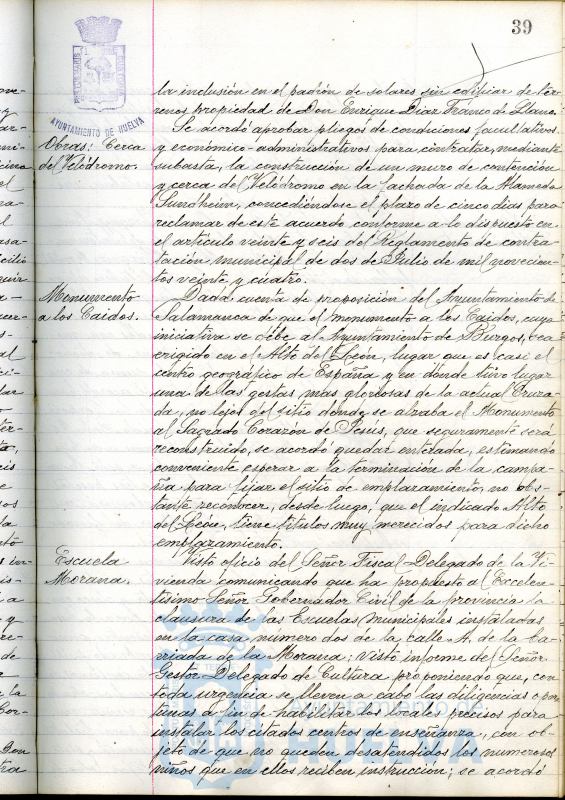 39
AYUNTAMIENTO DE HUELVA
la inclusión en el padrón de solares sin edificar de ter-
renos propiedad de Don Enrique Diaz Franco de Llano.
Se acordó aprobar pliegos de condiciones facultativos
Obras: Cerca
y económico-administrativos para contratar, mediante
del Velódromo.
subasta, la construcción de un muro de contención
y cerca del Velódromo en la fachada de la Alameda
Sundheim, concediéndose el plazo de cinco dias para
reclamar de este acuerdo conforme a lo dispuesto en
el artículo veinte y seis del Reglamento de contra-
tación municipal de dos de Julio de mil novecien-
tos veinte y cuatro.
Monumento
Dada cuenta de proposición del Ayuntamiento de
a los Caidos.
Salamanca de que el monumento a los Caidos, cuya
iniciativa se debe al Ayuntamiento de Burgos, sea
erigido en el Alto del León, lugar que es casi el
centro geográfico de España y en dónde tuvo lugar
una de las gestas mas gloriosas de la actual Cruza-
da, no lejos del sitio dónde se alzaba el Monumento
al Sagrado Corazón de Jesús, que seguramente será
reconstruido, se acordó quedar enterada, estimando
conveniente esperar a la terminación de la campa-
ña para fijar el sitio de emplazamiento, no obs-
tante reconocer, desde luego, que el indicado Alto
del León, tiene títulos muy merecidos para dicho
emplazamiento.
Escuela
Visto oficio del Señor Fiscal-Delegado de la Vi-
Morana.
vienda comunicando que ha propuesto al Excelen-
tísimo Señor Gobernador Civil de la provincia la
clausura de las Escuelas municipales instaladas
en la casa número dos de la calle A. de la ba-
rriada de la Morana; visto informe del Señor
Gestor Delegado de Cultura proponiendo que, con
toda urgencia se lleven a cabo las diligencias opor-
tunas a fin de habilitar los locales precisos para
instalar los citados centros de enseñanza, con ob-
jeto de que no queden desatendidos los numerosos
niños que en ellos reciben instrucción; se acordó
Ayuntamiento de
HUELVA